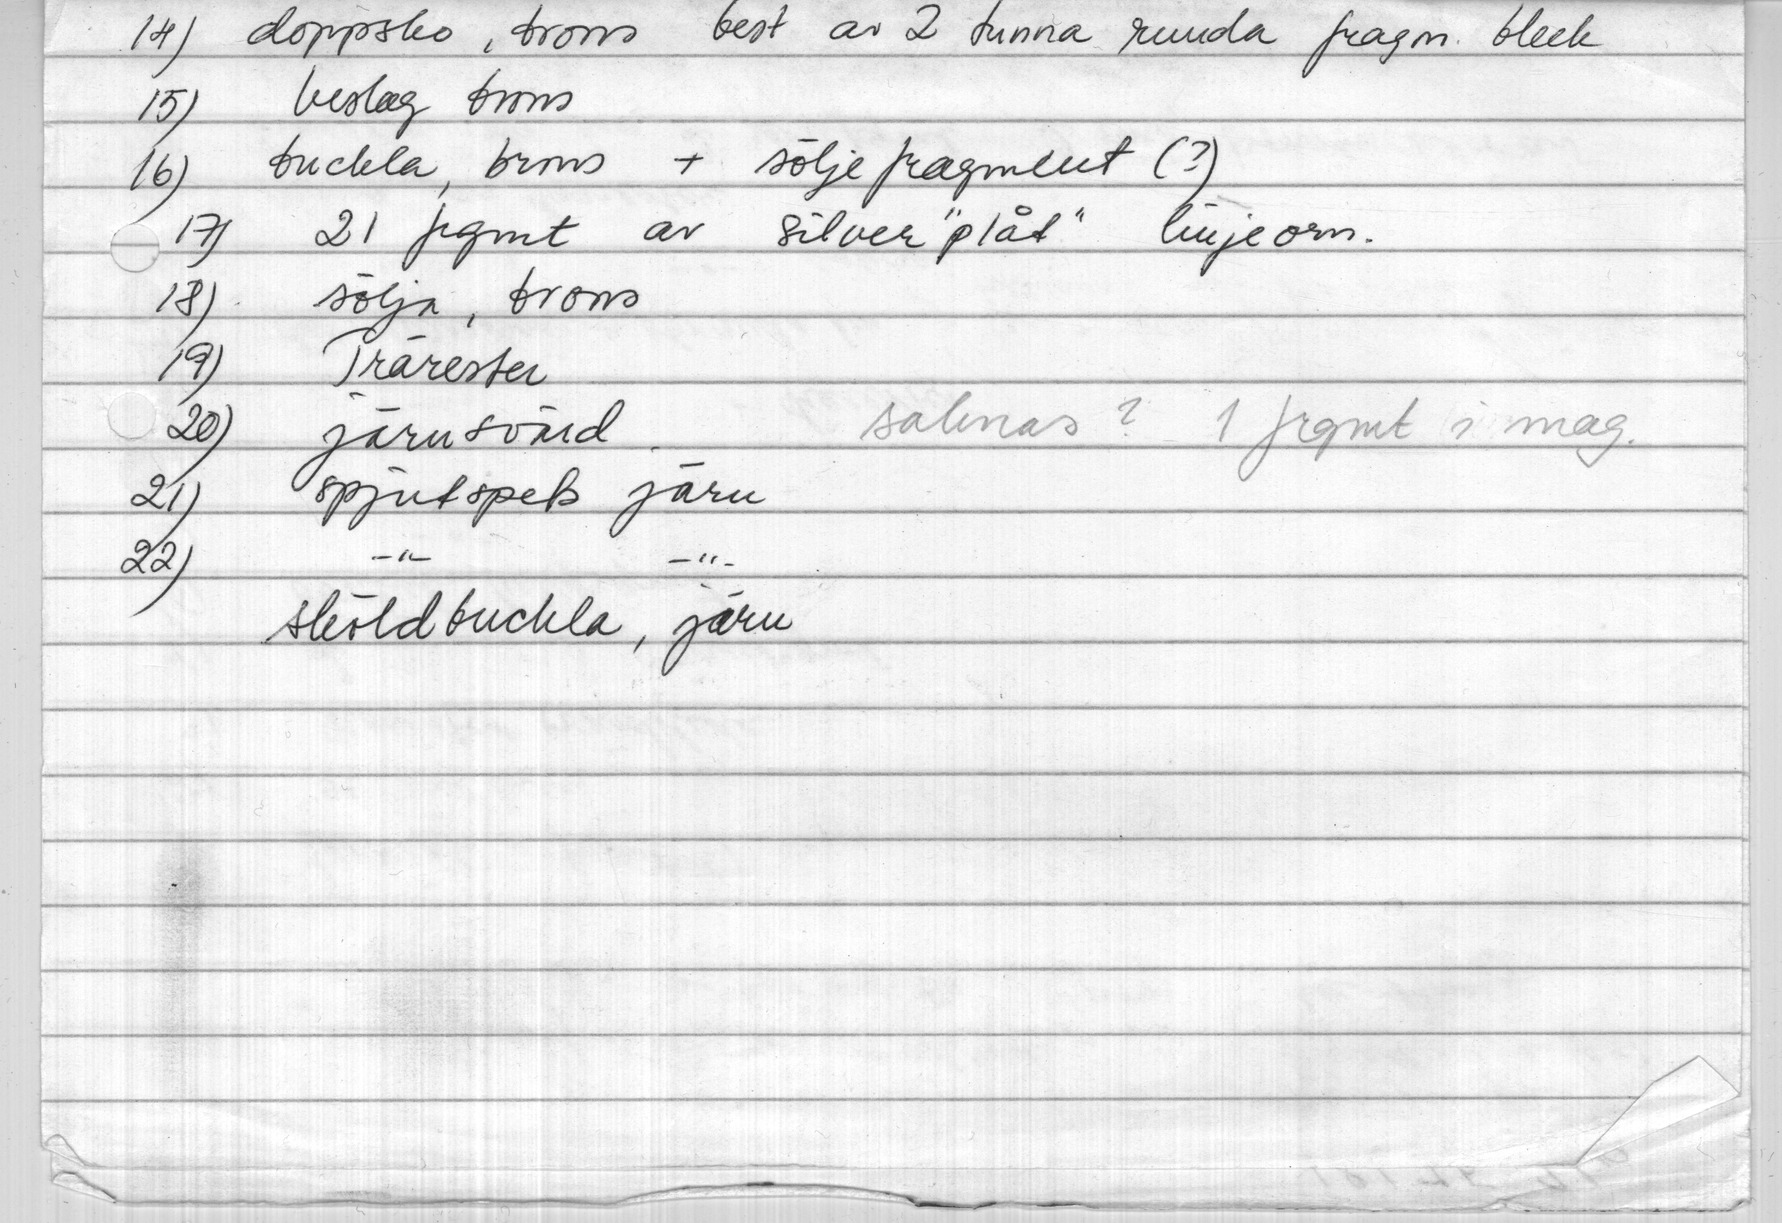 14) doppsko, brons best av 2 tunna runda fragm. bleck
15) beslag brons
16) buckla, brons + söljefragment (?)
17) 21 frgmt av silver "plåt" linjeorn.
18) sölja, brons
19) Trärester
20) järnsvärd. saknas? 1 frgmt i mag.
21) spjutspets järn
22) -"- -"-
sköldbuckla, järn